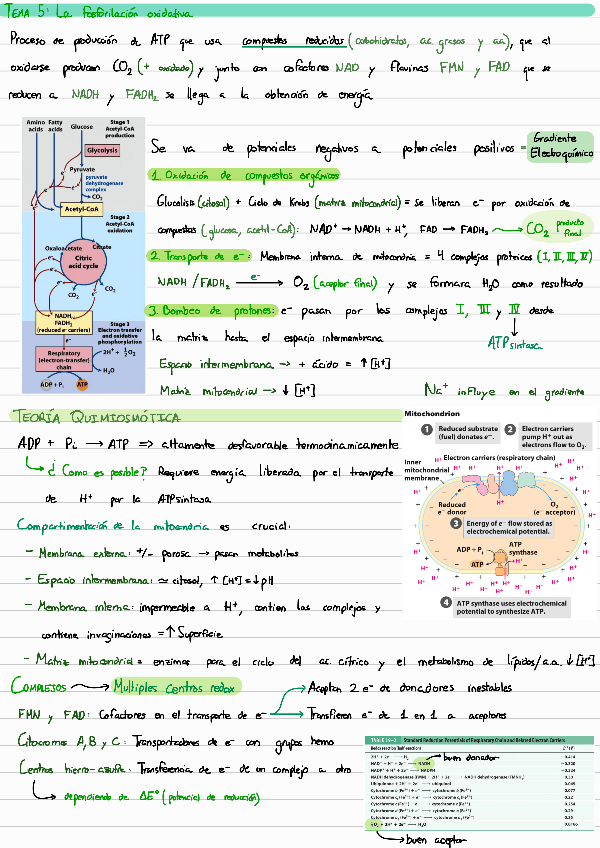 TEMA 5: La fosforilación oxidativa
Proceso de producción de ATP que usa compuestos reducidos (carbohidratos, ac. grasos y aa), que al
oxidarse producen CO2 (+ oxidado) y junto con cofactores NAD y flavinas FMN y FAD que se
reducen a NADH y FADH2 se llega a la obtención de energía
Amino acids Fatty acids Glucose
Stage 1
Acetyl-CoA
production
Glycolysis
Pyruvate
pyruvate
dehydrogenase
complex
CO2
Acetyl-CoA
Stage 2
Acetyl-CoA
oxidation
Oxaloacetate Citrate
Citric
acid cycle
CO2
CO2
NADH,
FADH2
(reduced e- carriers)
Stage 3
Electron transfer
and oxidative
phosphorylation
Respiratory
(electron-transfer)
chain
2H+ + ½O2
H2O
ADP + Pi ATP
Se va de potenciales negativos a potenciales positivos = Gradiente
Electroquímico
1. Oxidación de compuestos orgánicos
Glucolisis (citosol) + Ciclo de Krebs (matriz mitocondrial) = Se liberan e- por oxidación de
compuestos (glucosa, acetil-CoA): NAD+ → NADH + H+, FAD → FADH2 → CO2 producto
final
2. Transporte de e-: Membrana interna de mitocondria = 4 complejos proteicos (I, II, III, IV)
NADH / FADH2 e- → O2 (aceptor final) y se formara H2O como resultado
3. Bombeo de protones: e- pasan por los complejos I, III y IV desde
la matriz hasta el espacio intermembrana
ATP sintasa
Espacio intermembrana → + ácido = ↑ [H+]
Matriz mitocondrial → ↓ [H+]
Na+ influye en el gradiente
TEORÍA QUIMIOSMÓTICA
ADP + Pi → ATP => altamente desfavorable termodinamicamente
¿Como es posible? Requiere energía liberada por el transporte
de H+ por la ATPsintasa
Compartimentación de la mitocondria es crucial:
- Membrana externa: +/- porosa → pasan metabolitos
- Espacio intermembrana: ≃ citosol, ↑ [H+] = ↓ pH
- Membrana interna: impermeable a H+, contien los complejos y
contiene invaginaciones = ↑ Superficie
- Matriz mitocondrial = enzimas para el ciclo del ac. cítrico y el metabolismo de lípidos/a.a. ↓ [H+]
Mitochondrion
1 Reduced substrate
(fuel) donates e-.
2 Electron carriers
pump H+ out as
electrons flow to O2.
Inner
mitochondrial
membrane
Electron carriers (respiratory chain)
Reduced
e- donor
O2
(e- acceptor)
3 Energy of e- flow stored as
electrochemical potential.
ADP + Pi
ATP
synthase
ATP
4 ATP synthase uses electrochemical
potential to synthesize ATP.
COMPLEJOS → Multiples centros redox
Aceptan 2 e- de donadores inestables
Transfieren e- de 1 en 1 a aceptores
FMN y FAD: Cofactores en el transporte de e-
Citocromos A, B y C: Transportadores de e- con grupos hemo
Centros hierro-azufre: Transferencia de e- de un complejo a otro
dependiendo de ΔE° (potencial de reducción)
Standard Reduction Potentials of Respiratory Chain and Related Electron Carriers
buen donador
buen aceptor